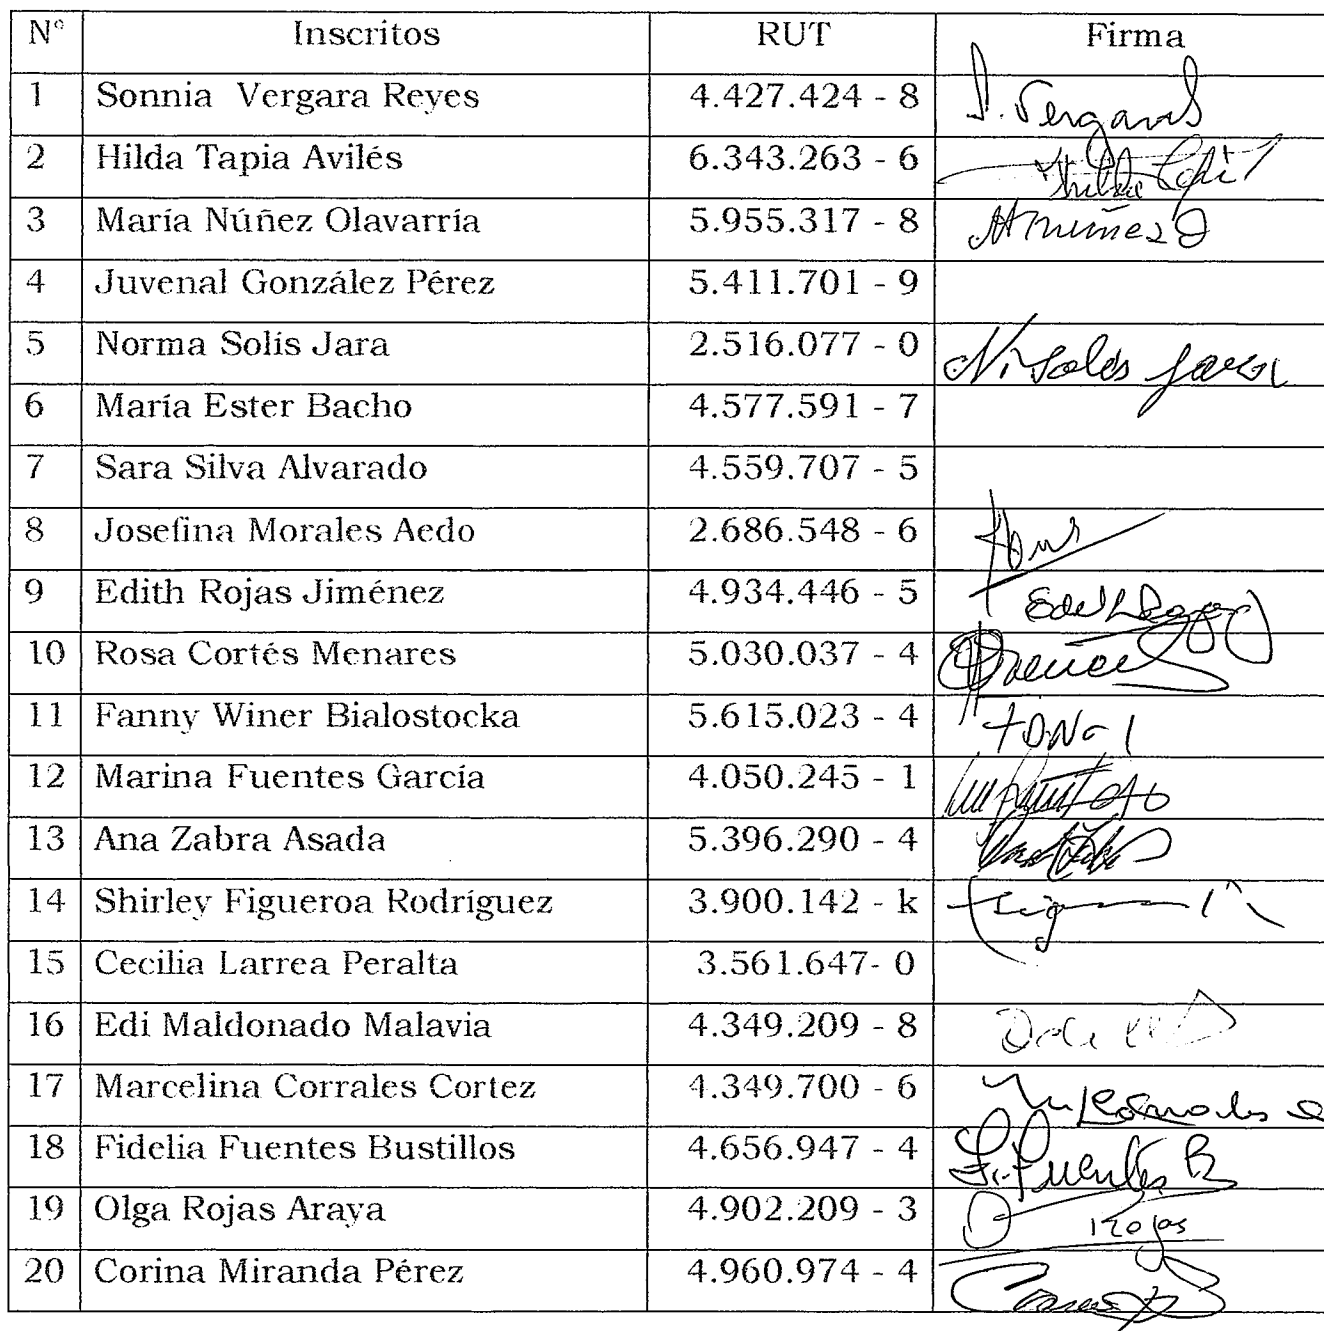 N° Inscritos RUT Firma
1 Sonnia Vergara Reyes 4.427.424 - 8 S. Vergara
2 Hilda Tapia Avilés 6.343.263 - 6
3 María Núñez Olavarría 5.955.317 - 8 M Nuñez O
4 Juvenal González Pérez 5.411.701 - 9
5 Norma Solís Jara 2.516.077 - 0 N. Solis Jara
6 María Ester Bacho 4.577.591 - 7
7 Sara Silva Alvarado 4.559.707 - 5
8 Josefina Morales Aedo 2.686.548 - 6
9 Edith Rojas Jiménez 4.934.446 - 5
10 Rosa Cortés Menares 5.030.037 - 4
11 Fanny Winer Bialostocka 5.615.023 - 4
12 Marina Fuentes García 4.050.245 - 1
13 Ana Zabra Asada 5.396.290 - 4
14 Shirley Figueroa Rodríguez 3.900.142 - k
15 Cecilia Larrea Peralta 3.561.647- 0
16 Edi Maldonado Malavia 4.349.209 - 8
17 Marcelina Corrales Cortez 4.349.700 - 6
18 Fidelia Fuentes Bustillos 4.656.947 - 4 F. Fuentes B
19 Olga Rojas Araya 4.902.209 - 3 O Rojas
20 Corina Miranda Pérez 4.960.974 - 4